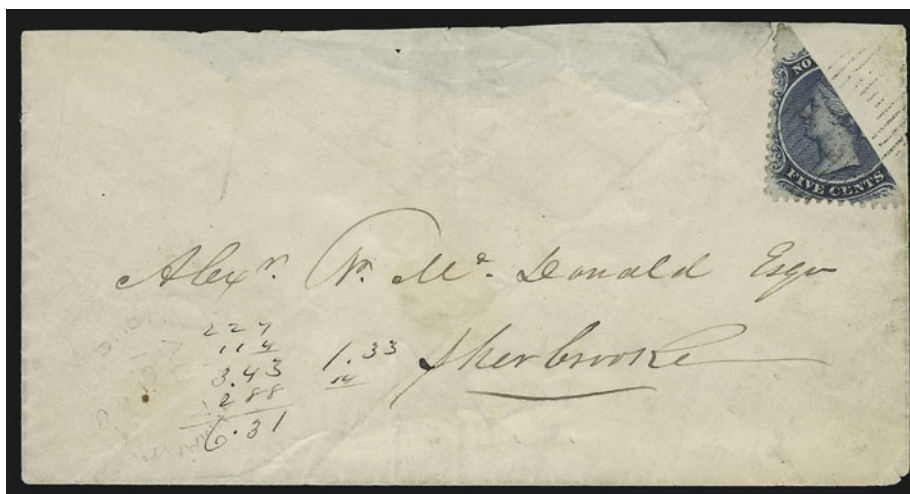 NO
FIVE CENTS
Alexr. W. Mc. Donald Esqr
Sherbrooke
227
114
3.43
288
6.31
1.33
14